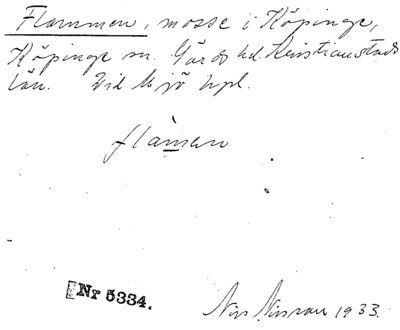 Flammen, mosse i Köpinge,
Köpinge sn. Gärds hd. Kristianstads
län. Vid Mjö hpl.
flàmen
Nr 5334.
Nils Nilsson 1933.